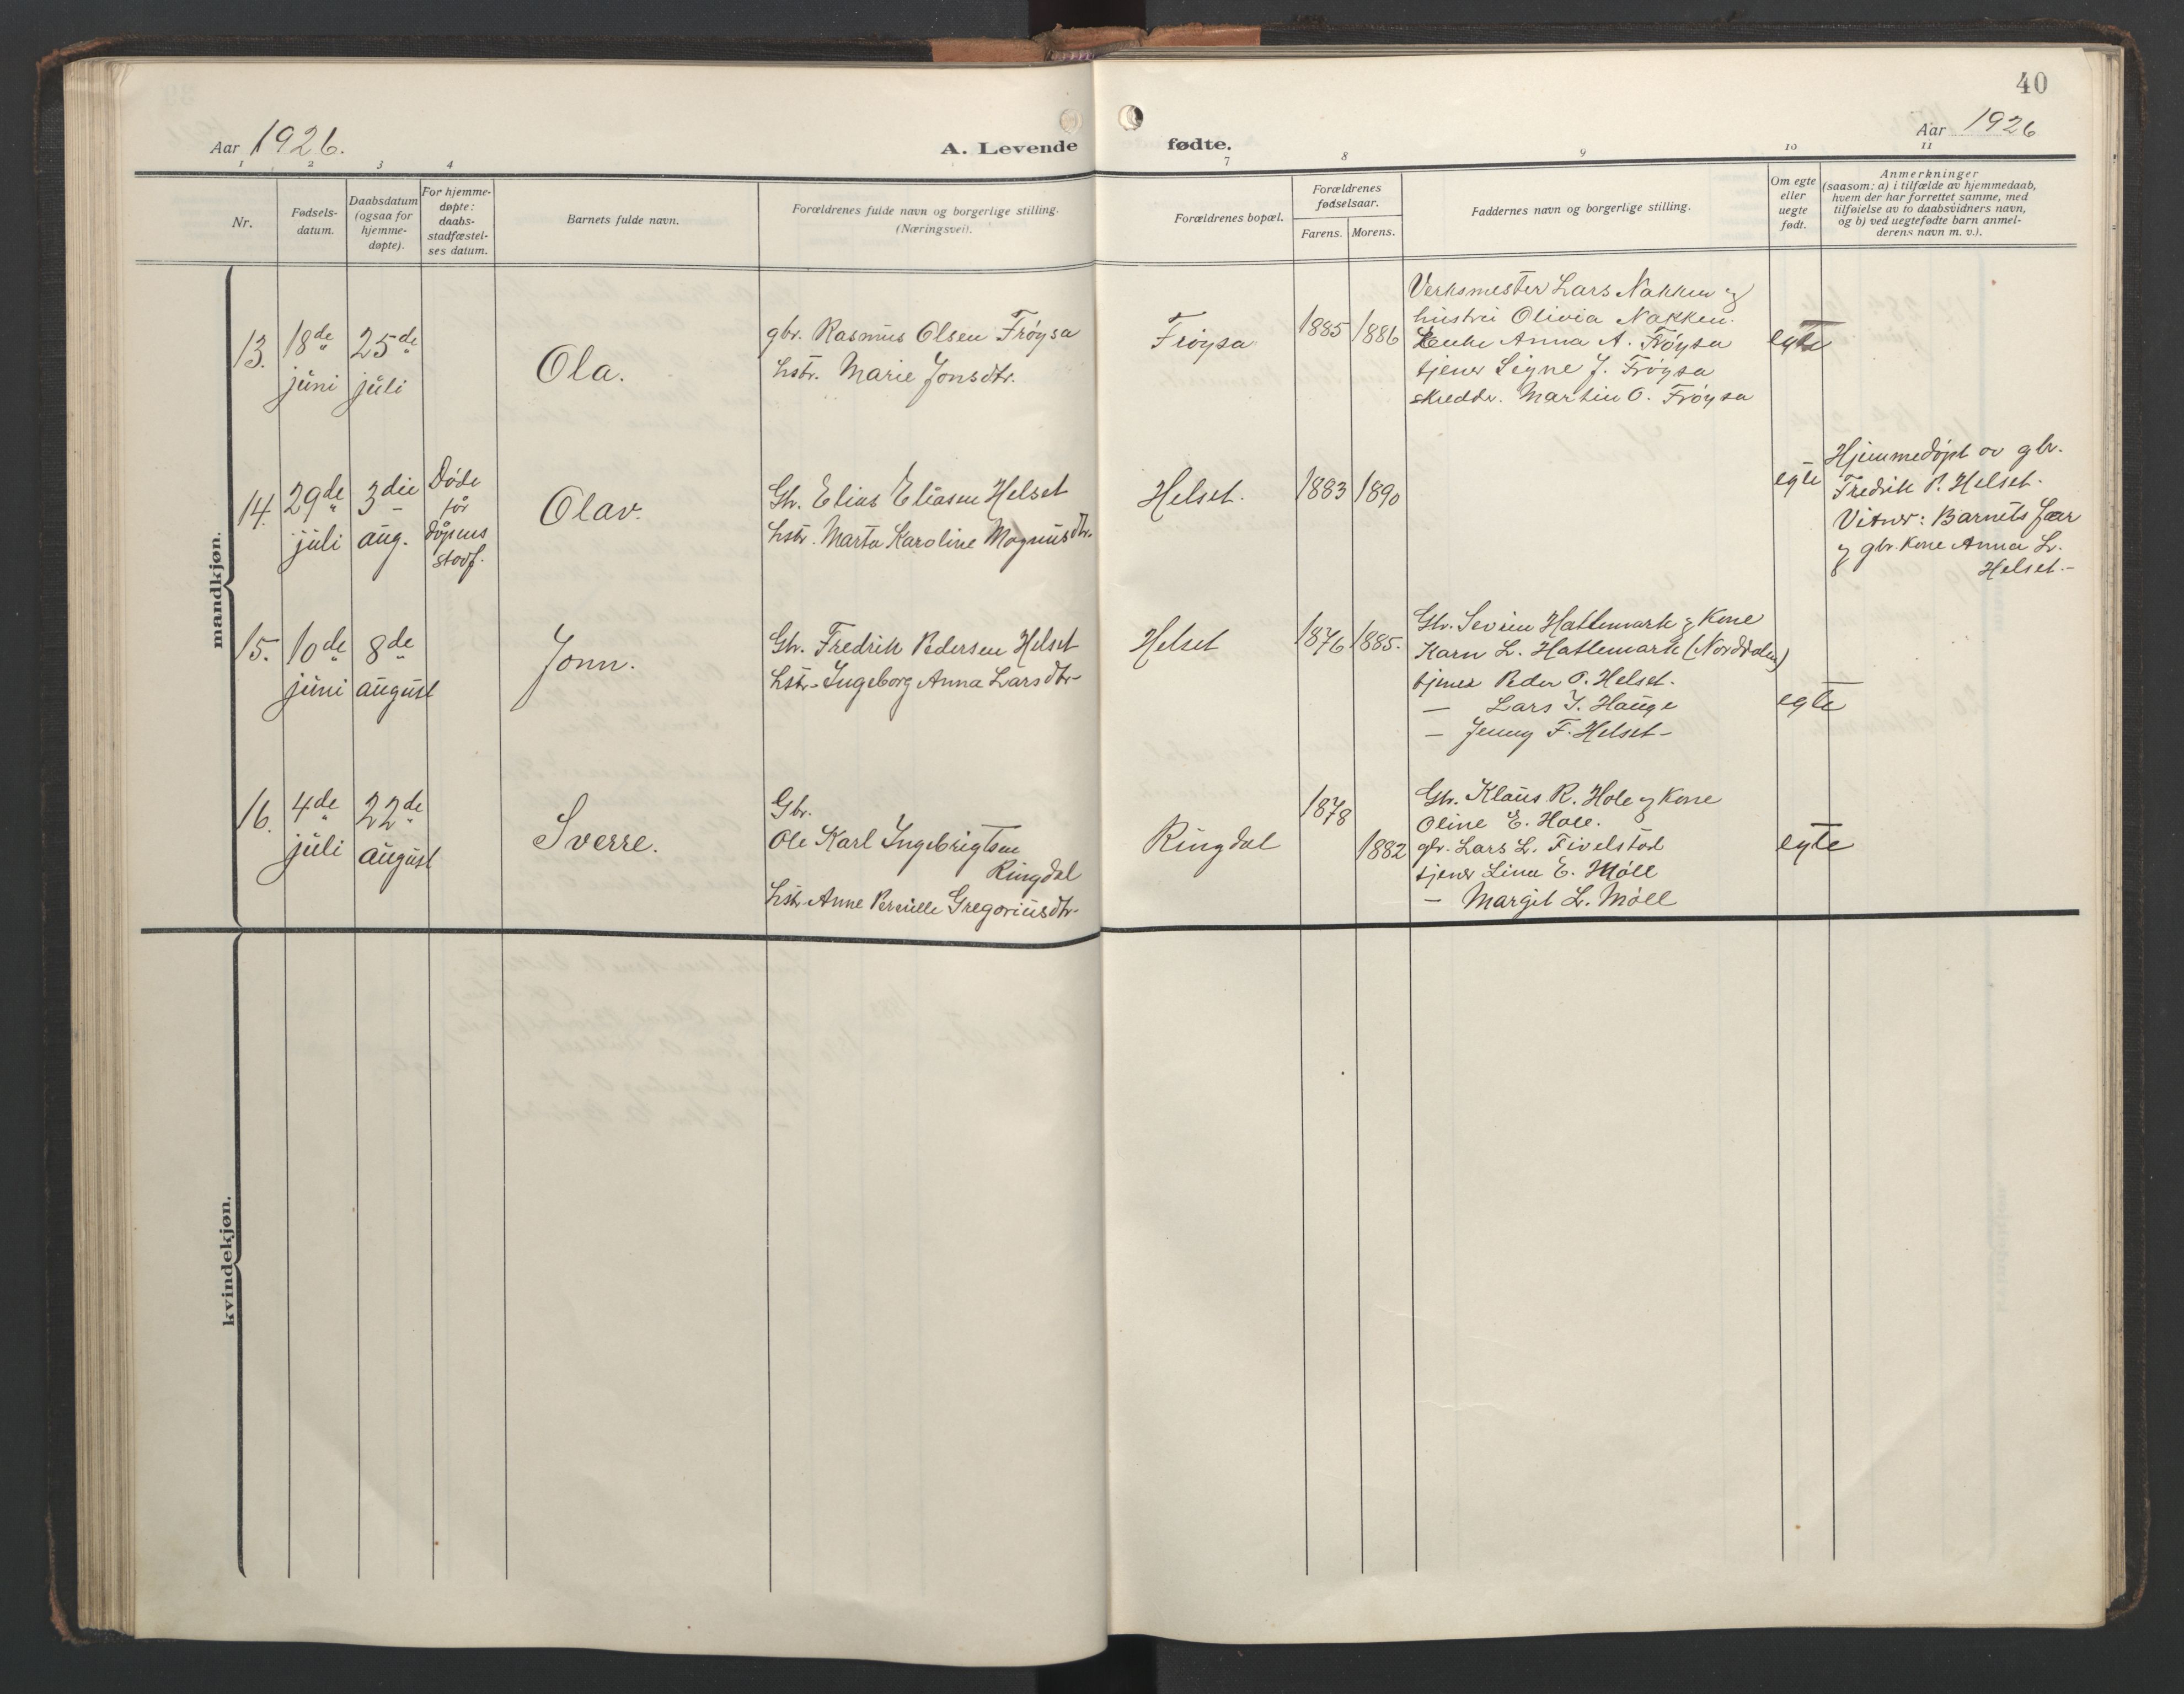 40
Aar 1926.
A. Levende fødte.
Aar 1926
1 2 3 4 7 8 9 10 11
Nr.
Fødsels-
datum.
Daabsdatum
(ogsaa for
hjemme-
døpte).
For hjemme-
døpte:
daabs-
stadfæstel-
ses datum.
Barnets fulde navn.
Forældrenes fulde navn og borgerlige stilling.
(Næringsvei).
Forældrenes bopæl.
Forældrenes
fødselsaar.
Farens. Morens.
Faddernes navn og borgerlige stilling.
Om egte
eller
uegte
født.
Anmerkninger
(saasom: a) i tilfælde av hjemmedaab,
hvem der har forrettet samme, med
tilføielse av to daabsvidners navn,
og b) ved uegtefødte barn anmel-
derens navn m. v.).
mandkjøn.
13.
18de
juni
25de
juli
Ola.
gbr. Rasmus Olsen Frøysa
hstr. Marie Jonsdtr.
Frøysa
1885 1886
Verksmester Lars Nakken og
hustru Olivia Nakken.
Enke Anna A. Frøysa
tjener Signe J. Frøysa
skreddr. Martin O. Frøysa
egte
14.
29de
juli
3die
aug.
Døde
før
dåpens
stadf.
Olav.
Gbr. Elias Eliasen Helset
hstr. Marta Karoline Magnusdtr.
Helset.
1883 1890
egte
Hjemmedøpt av gbr.
Fredrik P. Helset.
Vitner: Barnets far
og gbr. kone Anna L.
Helset.-
15.
10de
juni
8de
august
Jonn.
Gbr. Fredrik Pedersen Helset
hstr. Ingeborg Anna Larsdtr.
Helset
1876 1885.
Gbr. Sevrin Hatlemark og kone
Karn L. Hatlemark (Norddalen)
tjener Peder P. Helset.
— Lars J. Hauge
— Jenny F. Helset-
egte
16.
4de
juli
22de
august
Sverre.
Gbr.
Ole Karl Ingebrigtsen
Ringdal
hstr. Anne Pernille Gregoriusdtr.
Ringdal
1878
1882
Gbr. Klaus R. Hole og kone
Oline E. Hole.
gbr. Lars L. Fivelstad
tjener Lina E. Møll
— Margit L. Møll
egte
kvindekjøn.